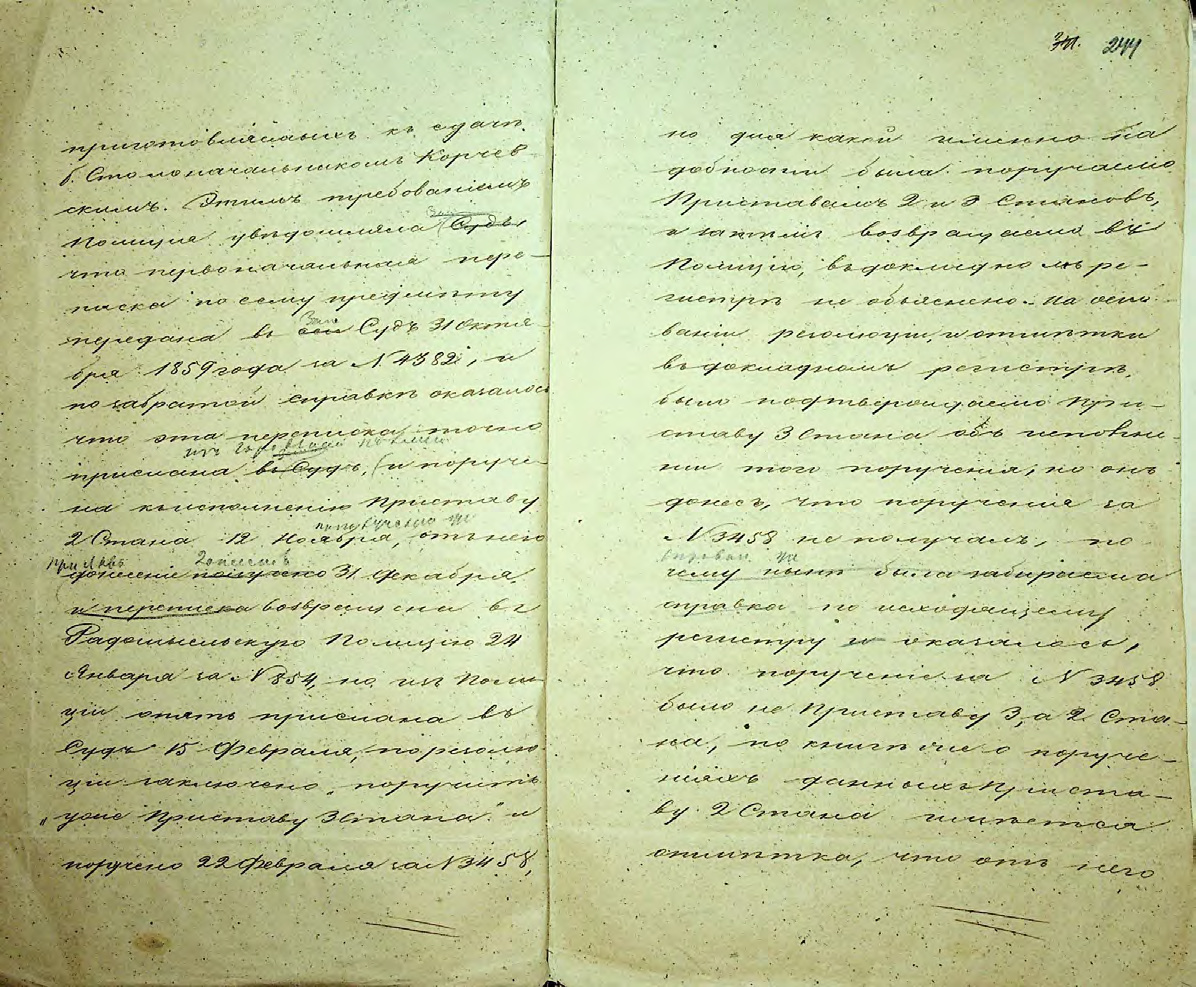 приготовляемыхъ къ сдачѣ
б. Столоначальникомъ Корчев-
скимъ. Этимъ требованіемъ
Полиція увѣдомляла Судъ,
что первоначальная пере-
писка по сему предмѣту
Зем
передана въ сей Судъ 31 Октя-
бря 1859 года за № 4382, и
по забратой справкѣ оказалось
что эта переписка точно
изъ Полиціи
прислана въ Судъ, и поруче-
на къ исполненію Приставу
2 Стана 12 Ноября, отъ него
при
донесеніе получено 31 Декабря
и переписка возвращена въ
Радомысльскую Полицію 24
Января за № 854, но изъ Поли-
ціи опять прислана въ
Судъ 15 Февраля, по резолю-
ціи заключено „поручить
уже Приставу 3 Стана" и
поручено 22 Февраля за № 3458,
244
но для какой именно на
добности была поручаемо
Приставамъ 2 и 3 Становъ,
и затѣмъ возвращаемо въ
Полицію, въ докладномъ ре-
гистрѣ не объяснено. На осно-
ваніи резолюціи, и отмѣтки
въ докладномъ регистрѣ,
было подтверждаемо При-
ставу 3 Стана объ исполне-
ніи того порученія, но онъ
донесъ, что порученія за
№ 3458 не получалъ, по
чему нынѣ была забираема
справка по исходящему
регистру и оказалось,
что порученіе за № 3458
было не Приставу 3, а 2 Ста-
на, по книгѣ же о поруче-
ніяхъ данныхъ Приста-
ву 2 Стана имѣется
отмѣтка, что отъ него